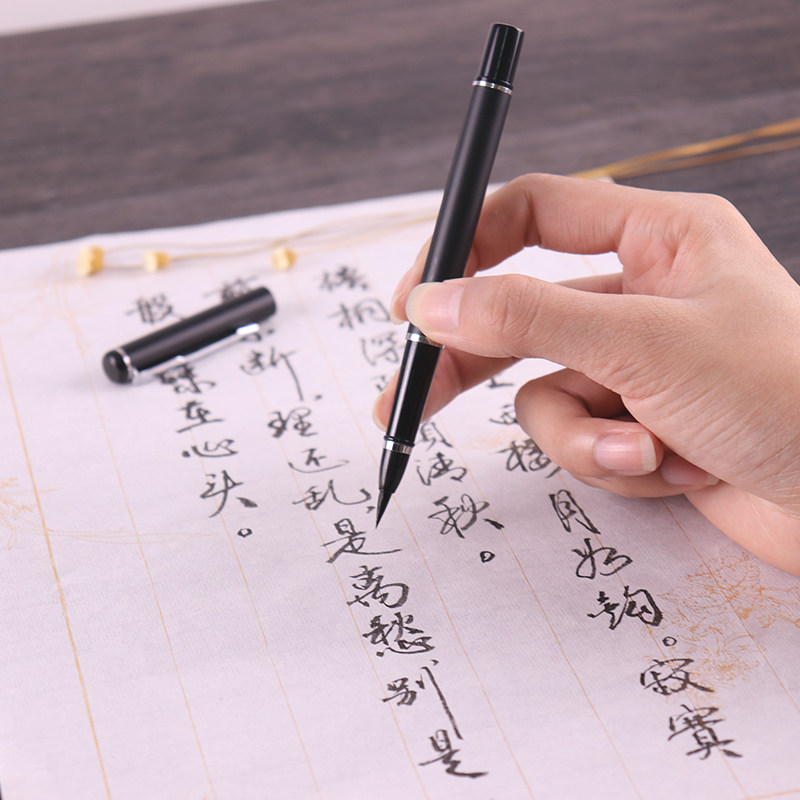 西楼月如钩。寂寞
梧桐深清秋。
不断，理还乱，是离愁别是
般味在心头。